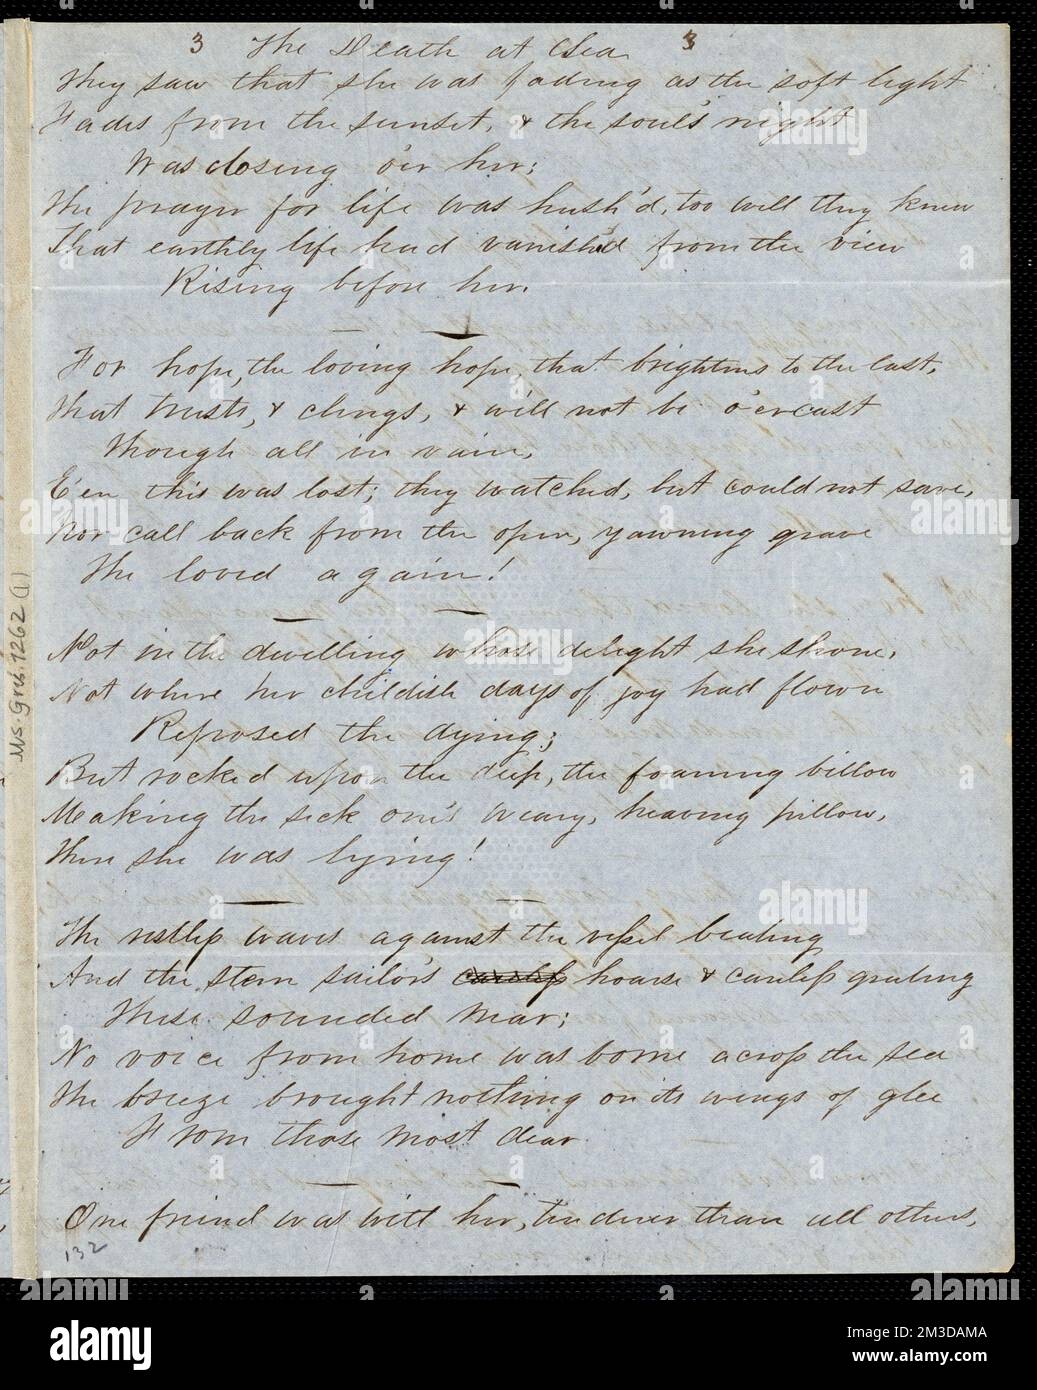 3 The Death at Sea 3
They saw that she was fading as the soft light
Fades from the sunset, & the soul's night
Was closing o'er her;
The prayer for life was hush'd, too well they knew
That earthly life had vanish'd from the view
Rising before her.
For hope, the loving hope, that brightens to the last,
That trusts, & clings, & will not be o'ercast
Though all in vain,
E'en this was lost; they watched, but could not save,
Nor call back from the open, yawning grave
The loved again!
Not in the dwelling whose delight she shone,
Not where her childish days of joy had flown
Reposed the dying;
But rocked upon the deep, the foaming billow
Making the sick one's weary, heaving pillow,
There she was lying!
The restless waves against the vessel beating
And the stern sailor's careless hoarse & careless grating
These sounded near;
No voice from home was borne across the sea
The breeze brought nothing on its wings of glee
From those most dear.
One friend was with her, tenderer than all others,
132
Ms. Gris. 1262 (1)
alamy
Image ID: 2M3DAMA
www.alamy.com